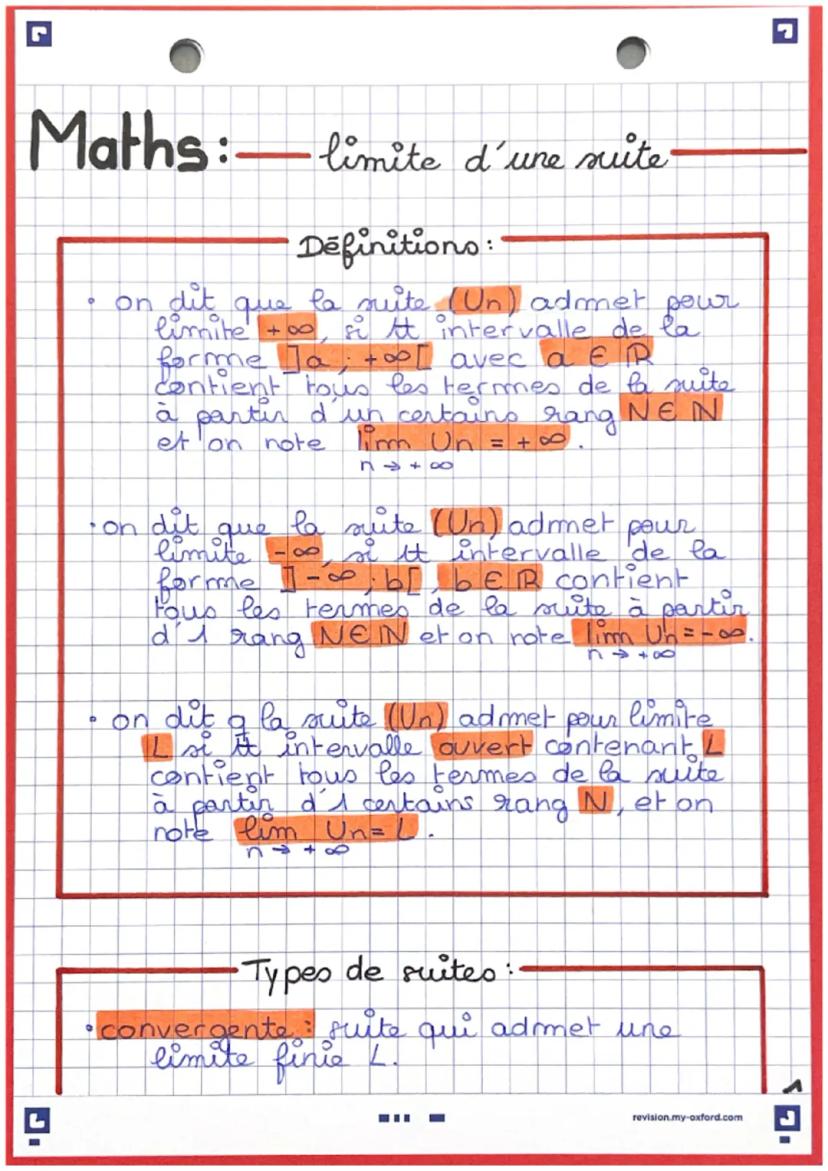 Maths: limite d'une suite
Définitions:
• on dit que la suite (Un) admet pour
limite +∞, si tt intervalle de la
forme ]a ; +∞[ avec a ∈ ℝ
contient tous les termes de la suite
à partir d'un certains rang N ∈ ℕ
et on note lim Un = +∞.
n → +∞
• on dit que la suite (Un) admet pour
limite -∞, si tt intervalle de la
forme ]-∞; b[, b ∈ ℝ contient
tous les termes de la suite à partir
d'1 rang N ∈ ℕ et on note lim Un = -∞.
n → +∞
• on dit q la suite (Un) admet pour limite
L si tt intervalle ouvert contenant L
contient tous les termes de la suite
à partir d'1 certains rang N, et on
note lim Un = L.
n → +∞
Types de suites:
• convergente: suite qui admet une
limite finie L.
1
revision.my-oxford.com